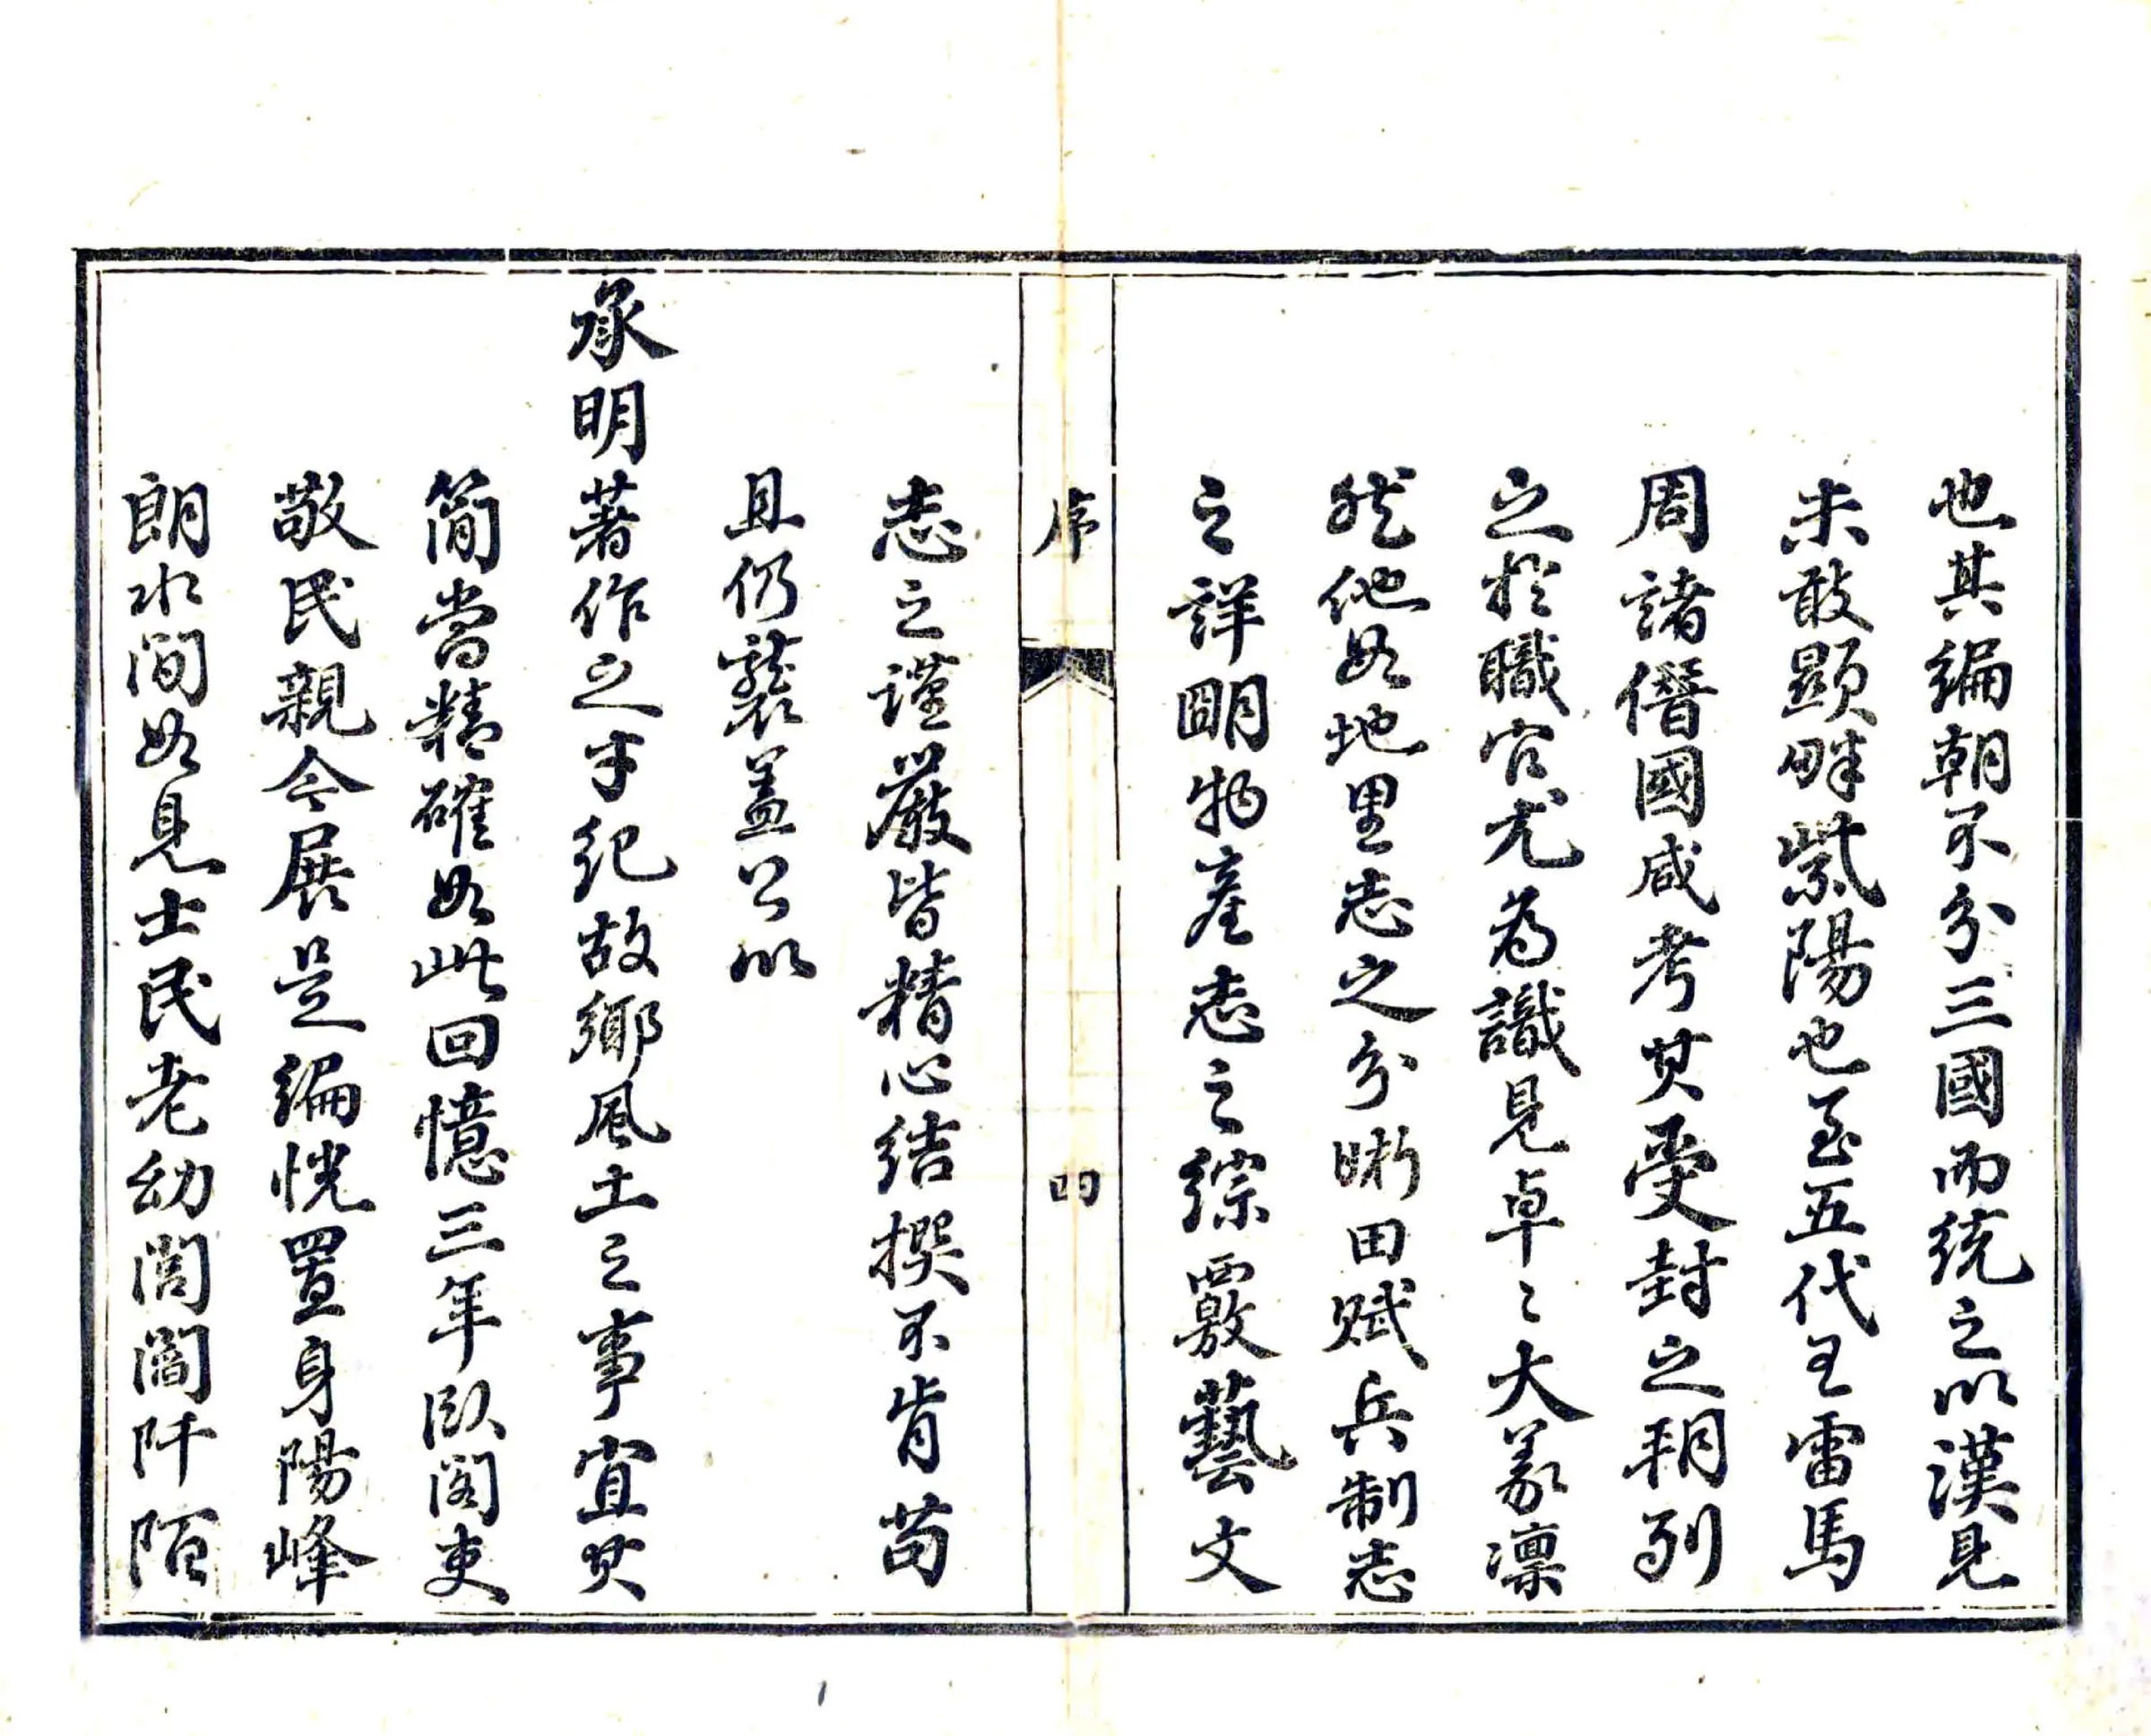 也其編朝不分三國而統之以漢見
未敢顯畔紫陽也至五代王雷馬
周諸僭國咸考其受封之朝列
之於職官尤為識見卓〻大義凛
然他如地里志之分晰田賦兵制志
之詳明物產志之綜覈藝文
序
四
志之謹嚴皆精心結撰不肯苟
且仍襲盖公以
承明著作之手紀故鄉風土之事宜其
簡當精確如此回憶三年臥閣吏
敬民親今展是編恍置身陽峰
朗水間如見士民老幼閭閻阡陌